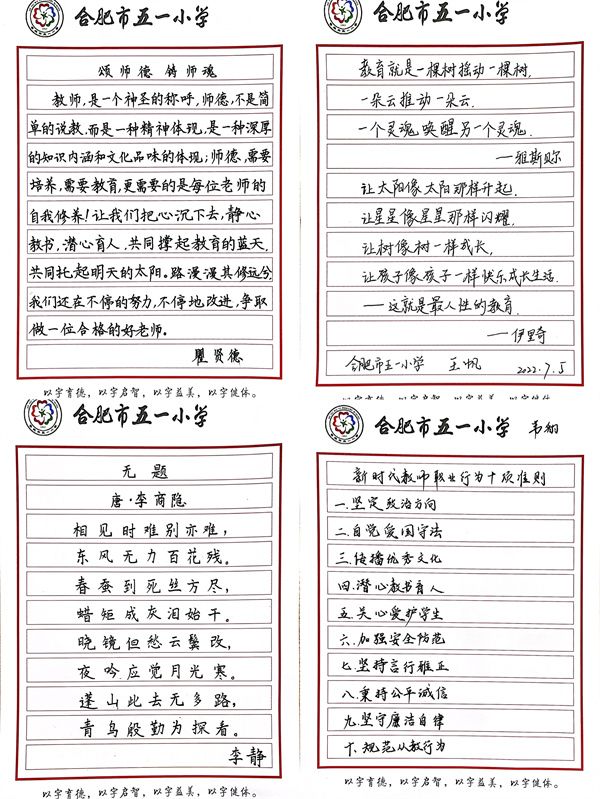 合肥市五一小学
颂师德 铸师魂
教师,是一个神圣的称呼,师德,不是简
单的说教,而是一种精神体现,是一种深厚
的知识内涵和文化品味的体现;师德,需要
培养,需要教育,更需要的是每位老师的
自我修养!让我们把心沉下去,静心
教书,潜心育人,共同撑起教育的蓝天,
共同托起明天的太阳。路漫漫其修远兮
我们还在不停的努力,不停地改进,争取
做一位合格的好老师。
瞿贤德
以字育德,以字启智,以字益美,以字健体。
合肥市五一小学
教育就是一棵树摇动一棵树,
一朵云推动一朵云.
一个灵魂唤醒另一个灵魂.
——雅斯贝尔
让太阳像太阳那样升起.
让星星像星星那样闪耀.
让树像树一样成长,
让孩子像孩子一样快乐成长生活.
——这就是最人性的教育.
——伊里奇
合肥市五一小学 王帆 2022.7.5
以字育德,以字启智,以字益美,以字健体。
合肥市五一小学
无题
唐·李商隐
相见时难别亦难,
东风无力百花残。
春蚕到死丝方尽,
蜡炬成灰泪始干。
晓镜但愁云鬓改,
夜吟应觉月光寒。
蓬山此去无多路,
青鸟殷勤为探看。
李静
以字育德,以字启智,以字益美,以字健体。
合肥市五一小学 韦翔
新时代教师职业行为十项准则
一.坚定政治方向
二.自觉爱国守法
三.传播优秀文化
四.潜心教书育人
五.关心爱护学生
六.加强安全防范
七.坚持言行雅正
八.秉持公平诚信
九.坚守廉洁自律
十.规范从教行为
以字育德,以字启智,以字益美,以字健体。